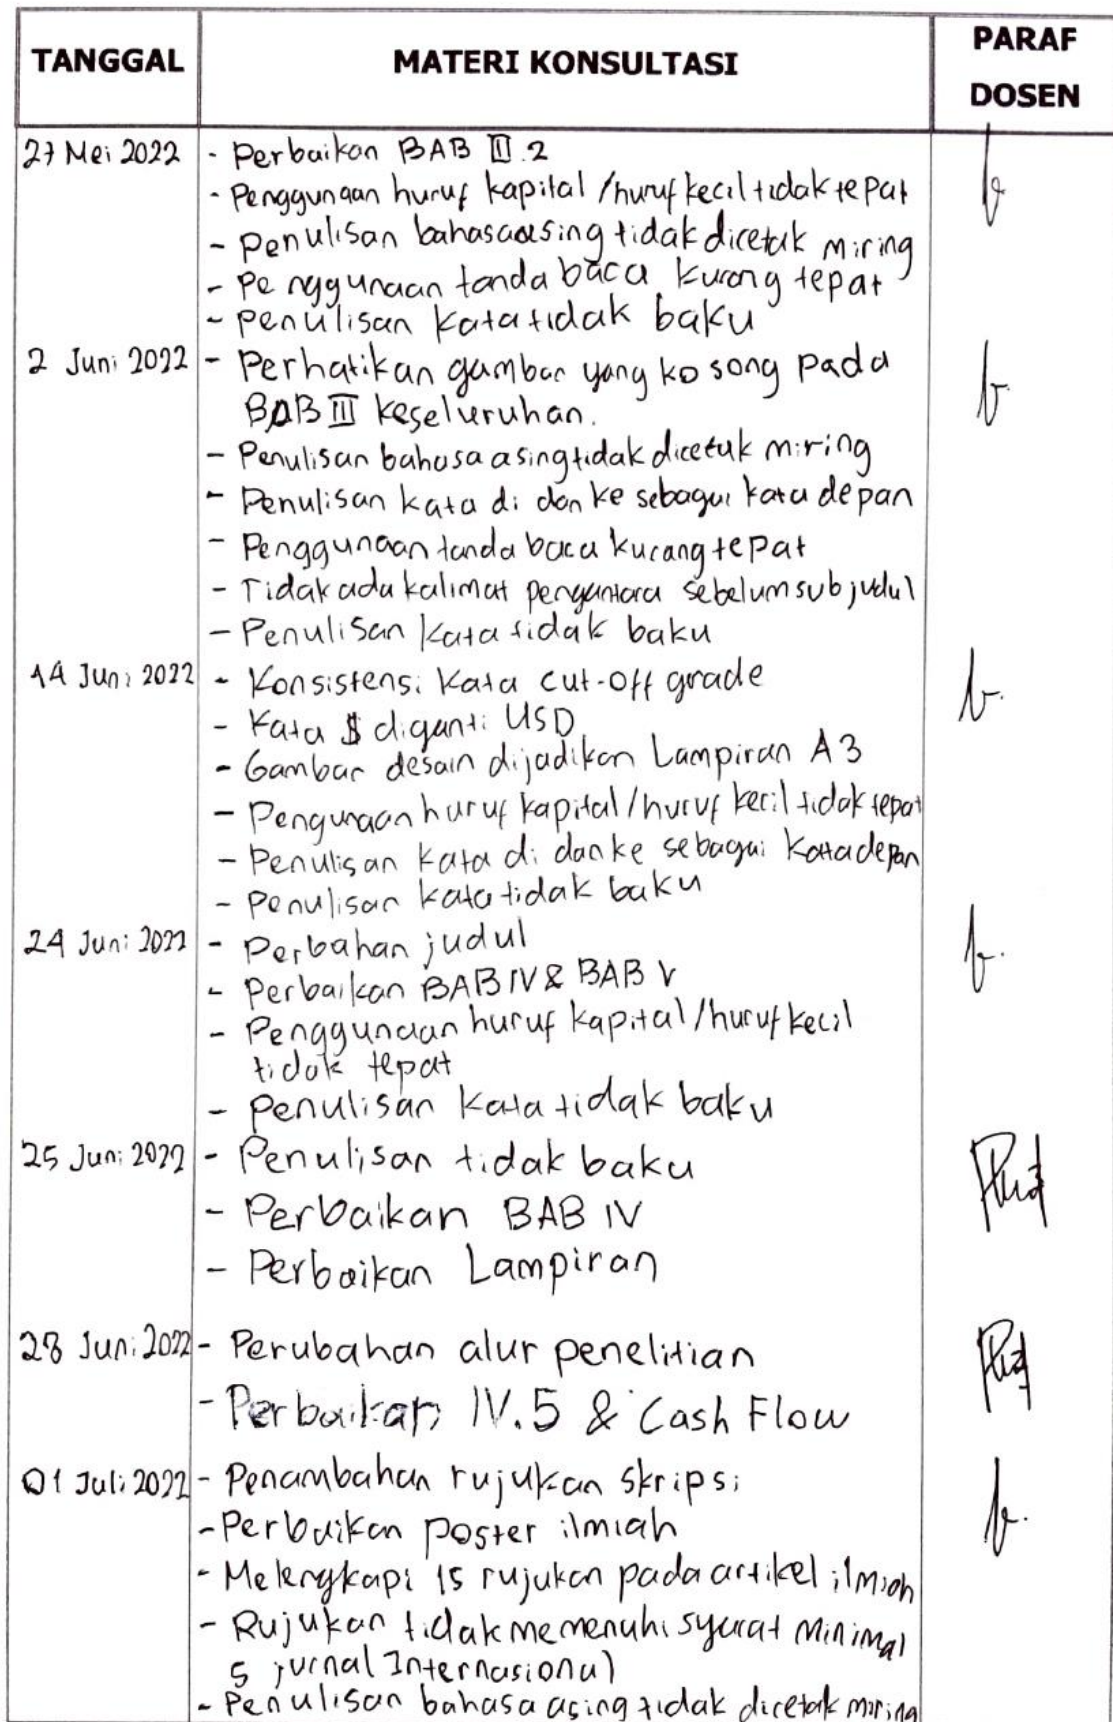 TANGGAL MATERI KONSULTASI PARAF
DOSEN
27 Mei 2022 - Perbaikan BAB III.2
- Penggunaan huruf kapital/huruf kecil tidak tepat
- Penulisan bahasa asing tidak dicetak miring
- Penggunaan tanda baca kurang tepat
- Penulisan kata tidak baku
2 Juni 2022 - Perhatikan gambar yang kosong pada
BAB III keseluruhan.
- Penulisan bahasa asing tidak dicetak miring
- Penulisan kata di dan ke sebagai kata depan
- Penggunaan tanda baca kurang tepat
- Tidak ada kalimat pengantara sebelum sub judul
- Penulisan kata tidak baku
14 Juni 2022 - Konsistensi kata cut-off grade
- Kata $ diganti USD
- Gambar desain dijadikan Lampiran A3
- Pengunaan huruf kapital/huruf kecil tidak tepat
- Penulisan kata di dan ke sebagai kata depan
- Penulisan kata tidak baku
24 Juni 2022 - Perbahan judul
- Perbaikan BAB IV & BAB V
- Penggunaan huruf kapital/huruf kecil
tidak tepat
- Penulisan kata tidak baku
25 Juni 2022 - Penulisan tidak baku
- Perbaikan BAB IV
- Perbaikan Lampiran
28 Juni 2022 - Perubahan alur penelitian
- Perbaikan IV.5 & Cash Flow
01 Juli 2022 - Penambahan rujukan skripsi
- Perbaikan poster ilmiah
- Melengkapi 15 rujukan pada artikel ilmiah
- Rujukan tidak memenuhi syarat minimal
5 jurnal Internasional
- Penulisan bahasa asing tidak dicetak miring